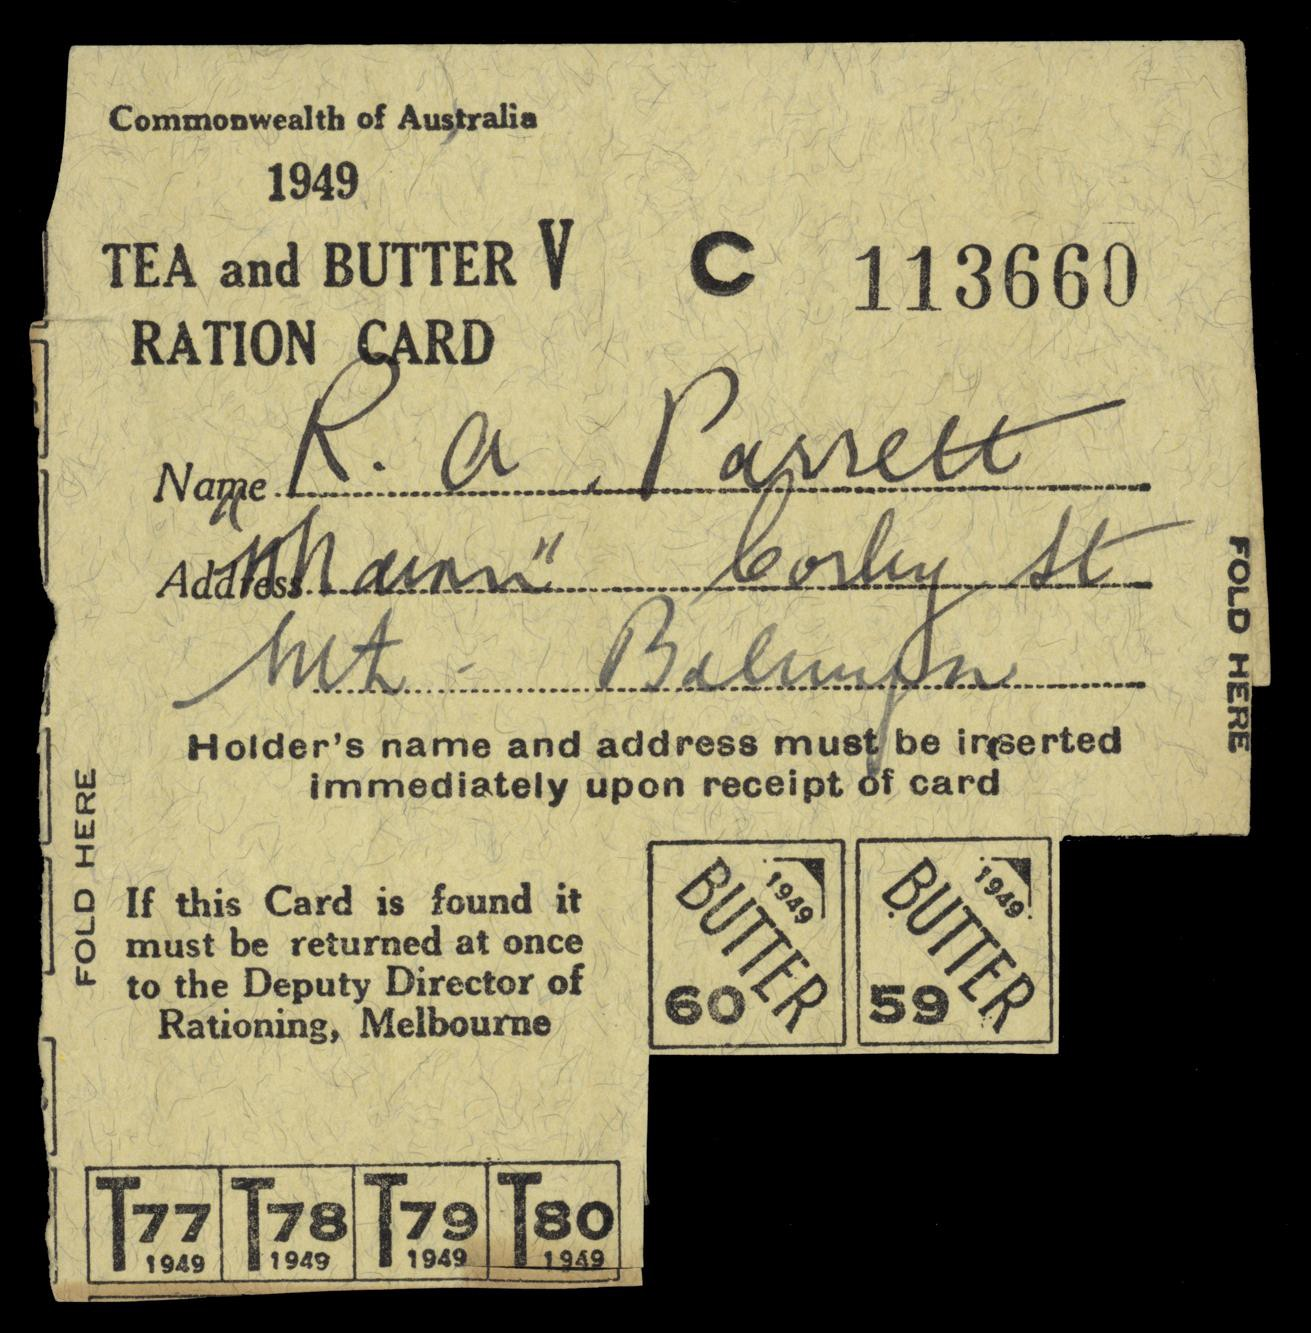 Commonwealth of Australia
1949
TEA and BUTTER V C 113660
RATION CARD
Name R. A. Parrett
Address St
Mt - Balwyn
Holder's name and address must be inserted
immediately upon receipt of card
FOLD HERE
FOLD HERE
If this Card is found it
must be returned at once
to the Deputy Director of
Rationing, Melbourne
1949 BUTTER 60
1949 BUTTER 59
T77 1949 T78 1949 T79 1949 T80 1949